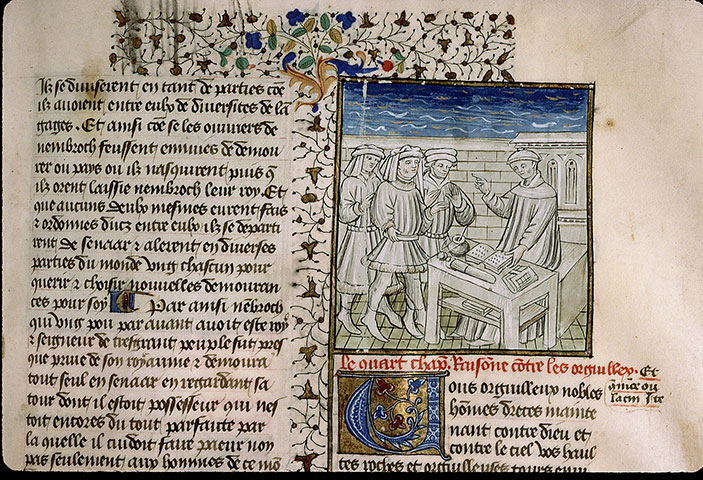 Ilz se diviserent en tant de parties cõe
ilz avoient entre eulx de diversites de lã
gages. Et ainsi cõe se les ouvriers de
nembroch feussent ennuies de demou
rer ou pays ou ilz nasquirent puis q̃
ilz orent laissie nembroch leur roy. Et
que aucuns deulx mesmes eurent fais
& ordonnes ducz entre eulx ilz se departi
rent de senaar & alerent en diverses
parties du monde ung chascun pour
querir & choisir nouvelles demouran
ces pour soy Par ainsi nẽbroch
qui ung pou par avant avoit este roy
& seigneur de tresgrant peuple fut pres
que prive de son royaume & demoura
tout seul en senaar en regardant sa
tour dont il estoit possesseur qui nes
toit encores du tout parfaicte par
la quelle il cuidoit faire paeur non
pas seulement aux hommes de ce mõ
le quart chap̃. Raisone cõtre les orguilleux. Et
Vous orguilleux nobles
hõmes dreces mainte
nant contre dieu et
contre le ciel vos haul
tes roches et orguilleuses tours